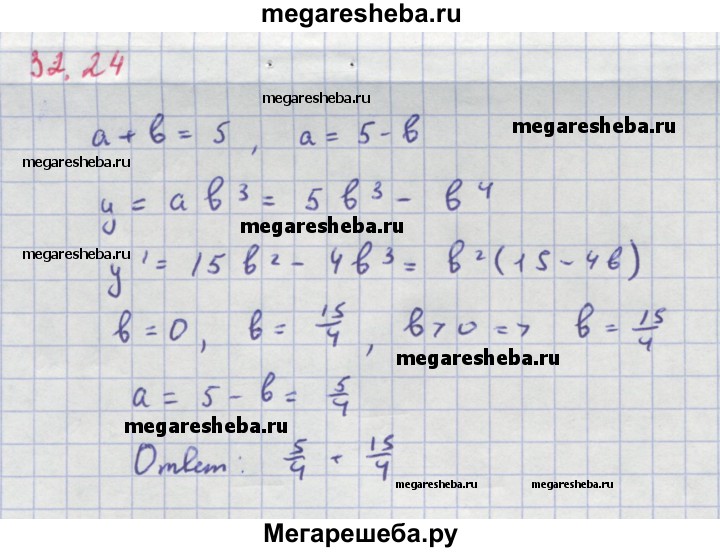 megaresheba.ru
32.24
megaresheba.ru
a + b = 5, a = 5 - b
megaresheba.ru
megaresheba.ru
y = a b³ = 5 b³ - b⁴
megaresheba.ru
megaresheba.ru
y' = 15 b² - 4b³ = b²(15 - 4b)
b = 0, b = 15/4, b > 0 => b = 15/4
megaresheba.ru
a = 5 - b = 5/4
megaresheba.ru
Ответ: 5/4 + 15/4
megaresheba.ru megaresheba.ru
Мегарешеба.ру